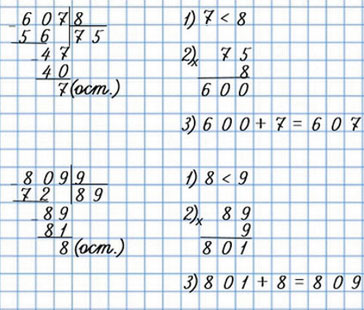 - 607 8
56 75
- 47
40
7 (ост.)
1) 7 < 8
2) x 75
8
600
3) 600 + 7 = 607
- 809 9
72 89
- 89
81
8 (ост.)
1) 8 < 9
2) x 89
9
801
3) 801 + 8 = 809